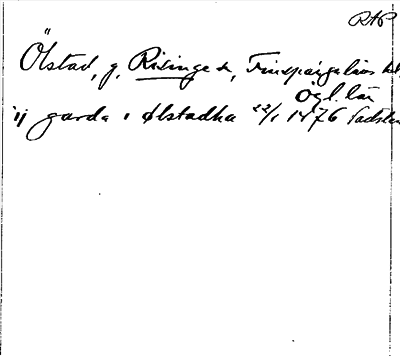 RAP
Ölstad, g, Risinge sn, Finspångaläns hd,
Ögl. län
ij garda i Ølstadha 22/1 1476 Vadsten